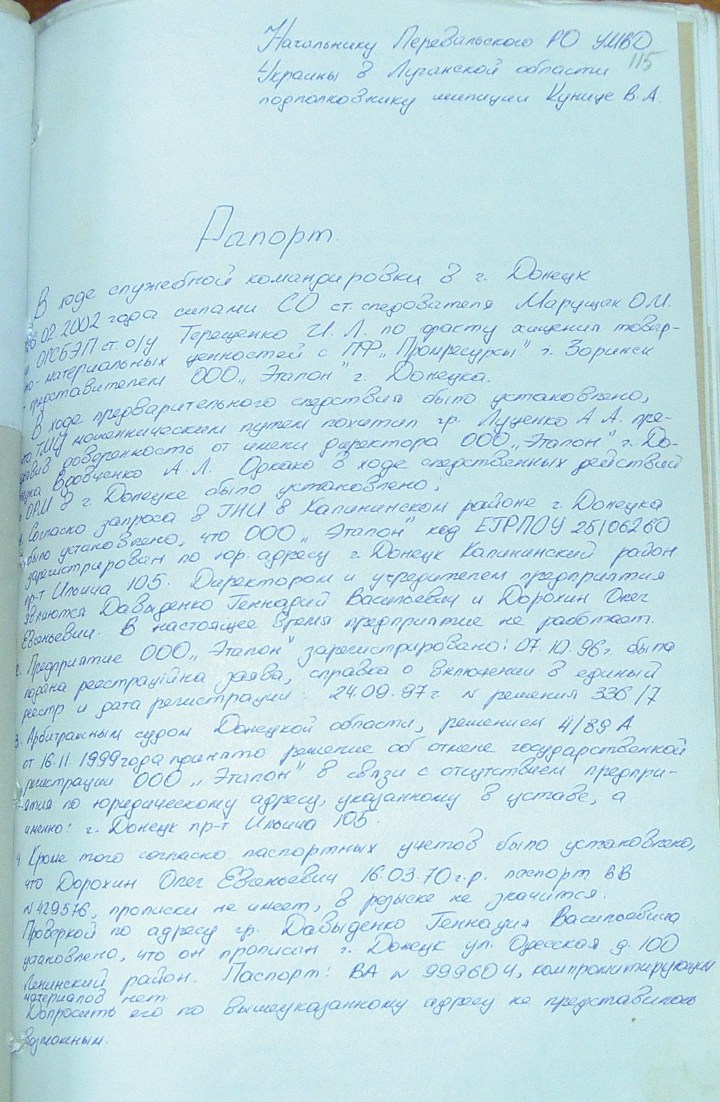 Начальнику Перевальского РО УМВД
115
Украины в Луганской области
подполковнику милиции Кунице В.А.
Рапорт.
В ходе служебной командировки в г. Донецк
06.02.2002 года силами СО ст. следователя Марущак О.М.
и ОГСБЭП ст. о/у Терещенко И.Л. по факту хищения товар-
но-материальных ценностей с ПФ „Промресурсы" г. Зоринск
- представителем ООО „Эталон" г. Донецка.
В ходе предварительного следствия было установлено,
что ТМЦ мошенническим путем похитил гр. Луценко А.А. пре-
дъявив доверенность от имени директора ООО „Эталон" г. До-
нецка Вдовченко А.Л. Однако в ходе следственных действий
и ОРМ в г. Донецке было установлено:
1. Согласно запроса в ГНИ в Калининском районе г. Донецка
было установлено, что ООО „Эталон" код ЕГРПОУ 25106260
зарегистрирован по юр. адресу г. Донецк Калининский район
пр-т Ильича 105. Директором и учредителем предприятия
являются Давыденко Геннадий Васильевич и Дорохин Олег
Евгеньевич. В настоящее время предприятие не работает.
2. Предприятие ООО „Эталон" зарегистрировано: 07.10.96г. была
подана реєстраційна заява, справка о включении в единый
реестр и дата регистрации: 24.09.97г N решения 336/7
3. Арбитражным судом Донецкой области, решением 4/89 А
от 16.11.1999 года принято решение об отмене государственной
регистрации ООО „Эталон" в связи с отсутствием предпри-
ятия по юридическому адресу, указанному в уставе, а
именно: г. Донецк пр-т Ильича 105.
4. Кроме того согласно паспортных учетов было установлено,
что Дорохин Олег Евгеньевич 16.03.70 г.р. паспорт ВВ
N 429576, прописки не имеет, в розыске не значится.
Проверкой по адресу гр. Давыденко Геннадия Васильевича
установлено, что он прописан г. Донецк ул. Одесская д. 100
Ленинский район. Паспорт: ВА N 999604, компромитирующих
материалов нет.
Допросить его по вышеуказанному адресу не представилось
возможным.